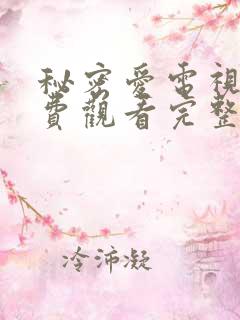 秘密愛電視
費觀看完整
冷沛凝